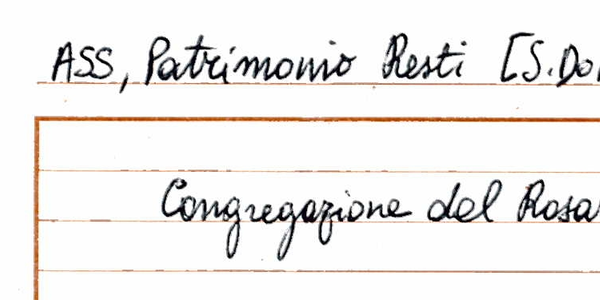 ASS, Patrimonio Resti [S. Do
Congregazione del Rosa